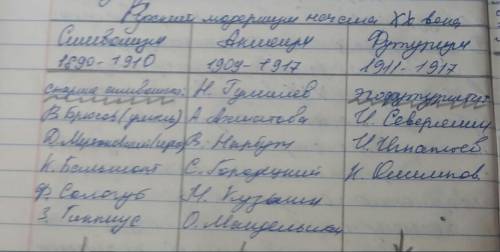 Русский модернизм начала XX века
Символизм Акмеизм Футуризм
1890-1910 1909-1917 1911-1917
старшие символисты: Н. Гумилёв эгофутуристы
В. Брюсов А. Ахматова И. Северянин
Д. Мережковский В. Нарбут И. Игнатьев
К. Бальмонт С. Городецкий К. Олимпов
Ф. Сологуб М. Кузмин
З. Гиппиус О. Мандельштам